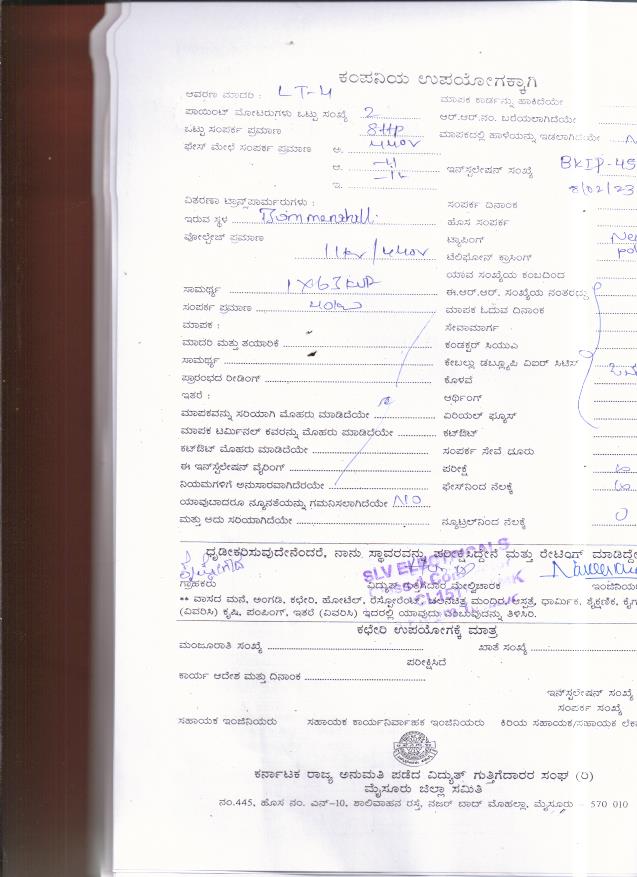 ಕಂಪನಿಯ ಉಪಯೋಗಕ್ಕಾಗಿ
ಆವರಣ ಮಾದರಿ : LT-4 ಮಾಪಕ ಕಾರ್ಡನ್ನು ಹಾಕಿದೆಯೇ
ಪಾಯಿಂಟ್ ಮೋಟರುಗಳು ಒಟ್ಟು ಸಂಖ್ಯೆ 2 ಆರ್.ಆರ್.ನಂ. ಬರೆಯಲಾಗಿದೆಯೇ
ಒಟ್ಟು ಸಂಪರ್ಕ ಪ್ರಮಾಣ 8HP ಮಾಪಕದಲ್ಲಿ ಹಾಳೆಯನ್ನು ಇಡಲಾಗಿದೆಯೇ
ಫೇಸ್ ಮೇಲೆ ಸಂಪರ್ಕ ಪ್ರಮಾಣ ಅ. 440V
ಆ. ಇನ್‌ಸ್ಟಲೇಷನ್ ಸಂಖ್ಯೆ BKIP-45
ಇ. 8/02/23
ವಿತರಣಾ ಟ್ರಾನ್ಸ್‌ಪಾರ್ಮರುಗಳು : ಸಂಪರ್ಕ ದಿನಾಂಕ
ಇರುವ ಸ್ಥಳ Bommenahalli ಹೊಸ ಸಂಪರ್ಕ
ವೋಲ್ಟೇಜ್ ಪ್ರಮಾಣ 11kv/440V ಟ್ಯಾಪಿಂಗ್
ಟೆಲಿಫೋನ್ ಕ್ರಾಸಿಂಗ್
ಯಾವ ಸಂಖ್ಯೆಯ ಕಂಬದಿಂದ
ಸಾಮರ್ಥ್ಯ 1X63KVA ಈ.ಆರ್.ಆರ್. ಸಂಖ್ಯೆಯ ನಂತರದ್ದು
ಸಂಪರ್ಕ ಪ್ರಮಾಣ ಮಾಪಕ ಓದುವ ದಿನಾಂಕ
ಮಾಪಕ : ಸೇವಾಮಾರ್ಗ
ಮಾದರಿ ಮತ್ತು ತಯಾರಿಕೆ ಕಂಡಕ್ಟರ್ ಸಿಯುಎ
ಸಾಮರ್ಥ್ಯ ಕೇಬಲ್ಲು ಡಬ್ಲ್ಯೂಪಿ ವಿಐರ್ ಸಿಟಿಸ್
ಪ್ರಾರಂಭದ ರೀಡಿಂಗ್ ಕೊಳವೆ
ಇತರೆ : ಆರ್ಥಿಂಗ್
ಮಾಪಕವನ್ನು ಸರಿಯಾಗಿ ಮೊಹರು ಮಾಡಿದೆಯೇ ಏರಿಯಲ್ ಫ್ಯೂಸ್
ಮಾಪಕ ಟರ್ಮಿನಲ್ ಕವರನ್ನು ಮೊಹರು ಮಾಡಿದೆಯೇ ಕಟ್‌ಔಟ್
ಕಟ್‌ಔಟ್ ಮೊಹರು ಮಾಡಿದೆಯೇ ಸಂಪರ್ಕ ಸೇವೆ ದೂರು
ಈ ಇನ್‌ಸ್ಟಲೇಷನ್ ವೈರಿಂಗ್ ಪರೀಕ್ಷೆ
ನಿಯಮಗಳಿಗೆ ಅನುಸಾರವಾಗಿದೆಯೇ ಫೇಸ್‌ನಿಂದ ನೆಲಕ್ಕೆ
ಯಾವುಬಾದರೂ ನ್ಯೂನತೆಯನ್ನು ಗಮನಿಸಲಾಗಿದೆಯೇ NO
ಮತ್ತು ಅದು ಸರಿಯಾಗಿದೆಯೇ ನ್ಯೂಟ್ರಲ್‌ನಿಂದ ನೆಲಕ್ಕೆ 0
ಧೃಡೀಕರಿಸುವುದೇನೆಂದರೆ, ನಾನು ಸ್ಥಾವರವನ್ನು ಪರೀಕ್ಷಿಸಿದ್ದೇನೆ ಮತ್ತು ರೇಟಿಂಗ್ ಮಾಡಿದ್ದೇ
SLV ELECTRICALS
ಗ್ರಾಹಕರು ವಿದ್ಯುತ್ ಗುತ್ತಿಗೆದಾರ ಮೇಲ್ವಿಚಾರಕ ಇಂಜಿನಿಯ
** ವಾಸದ ಮನೆ, ಅಂಗಡಿ, ಕಛೇರಿ, ಹೋಟೆಲ್, ರೆಸ್ಟೋರೆಂಟ್, ಚಲನಚಿತ್ರ ಮಂದಿರ, ಆಸ್ಪತ್ರೆ, ಧಾರ್ಮಿಕ, ಶೈಕ್ಷಣಿಕ, ಕೈಗ
(ವಿವರಿಸಿ) ಕೃಷಿ, ಪಂಪಿಂಗ್, ಇತರೆ (ವಿವರಿಸಿ) ಇದರಲ್ಲಿ ಯಾವುದು ಎಂಬುದನ್ನು ತಿಳಿಸಿರಿ.
ಕಛೇರಿ ಉಪಯೋಗಕ್ಕೆ ಮಾತ್ರ
ಮಂಜೂರಾತಿ ಸಂಖ್ಯೆ ಖಾತೆ ಸಂಖ್ಯೆ
ಪರೀಕ್ಷಿಸಿದೆ
ಕಾರ್ಯ ಆದೇಶ ಮತ್ತು ದಿನಾಂಕ
ಇನ್‌ಸ್ಟಲೇಷನ್ ಸಂಖ್ಯೆ
ಸಂಪರ್ಕ ಸಂಖ್ಯೆ
ಸಹಾಯಕ ಇಂಜಿನಿಯರು ಸಹಾಯಕ ಕಾರ್ಯನಿರ್ವಾಹಕ ಇಂಜಿನಿಯರು ಕಿರಿಯ ಸಹಾಯಕ/ಸಹಾಯಕ ಲೆಕ
ಕರ್ನಾಟಕ ರಾಜ್ಯ ಅನುಮತಿ ಪಡೆದ ವಿದ್ಯುತ್ ಗುತ್ತಿಗೆದಾರರ ಸಂಘ (ರಿ)
ಮೈಸೂರು ಜಿಲ್ಲಾ ಸಮಿತಿ
ನಂ.445, ಹೊಸ ನಂ. ಎನ್-10, ಶಾಲಿವಾಹನ ರಸ್ತೆ, ನಜರ್ ಬಾದ್ ಮೊಹಲ್ಲಾ, ಮೈಸೂರು - 570 010